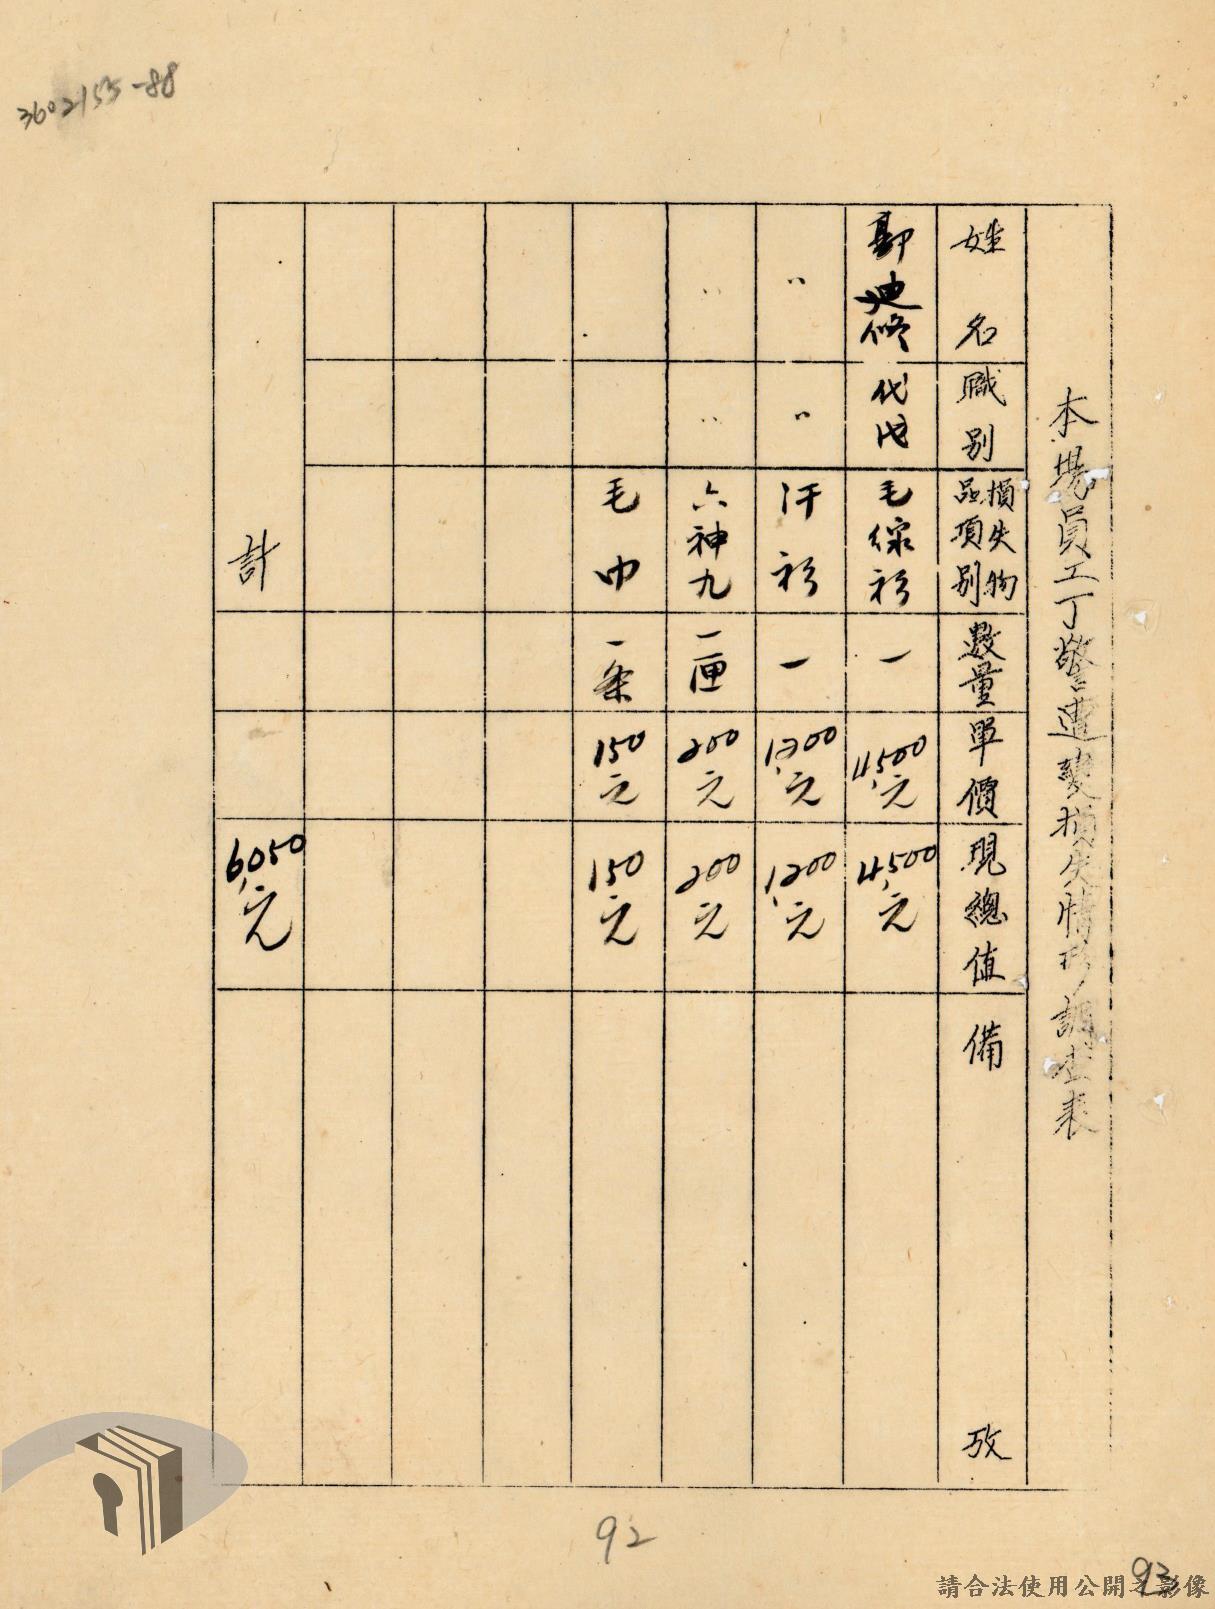 3602153-88
本場員工丁警遭變損失情形調查表
姓名 職別 損失物品項別 數量 單價 現總值 備攷
郭迪修 代 毛線衫 一 4,500元 4,500元
〃 〃 汗衫 一 1,200元 1,200元
〃 〃 六神九 一匣 200元 200元
毛巾 一条 150元 150元
計 6,050元
92
93
請合法使用公開之影像